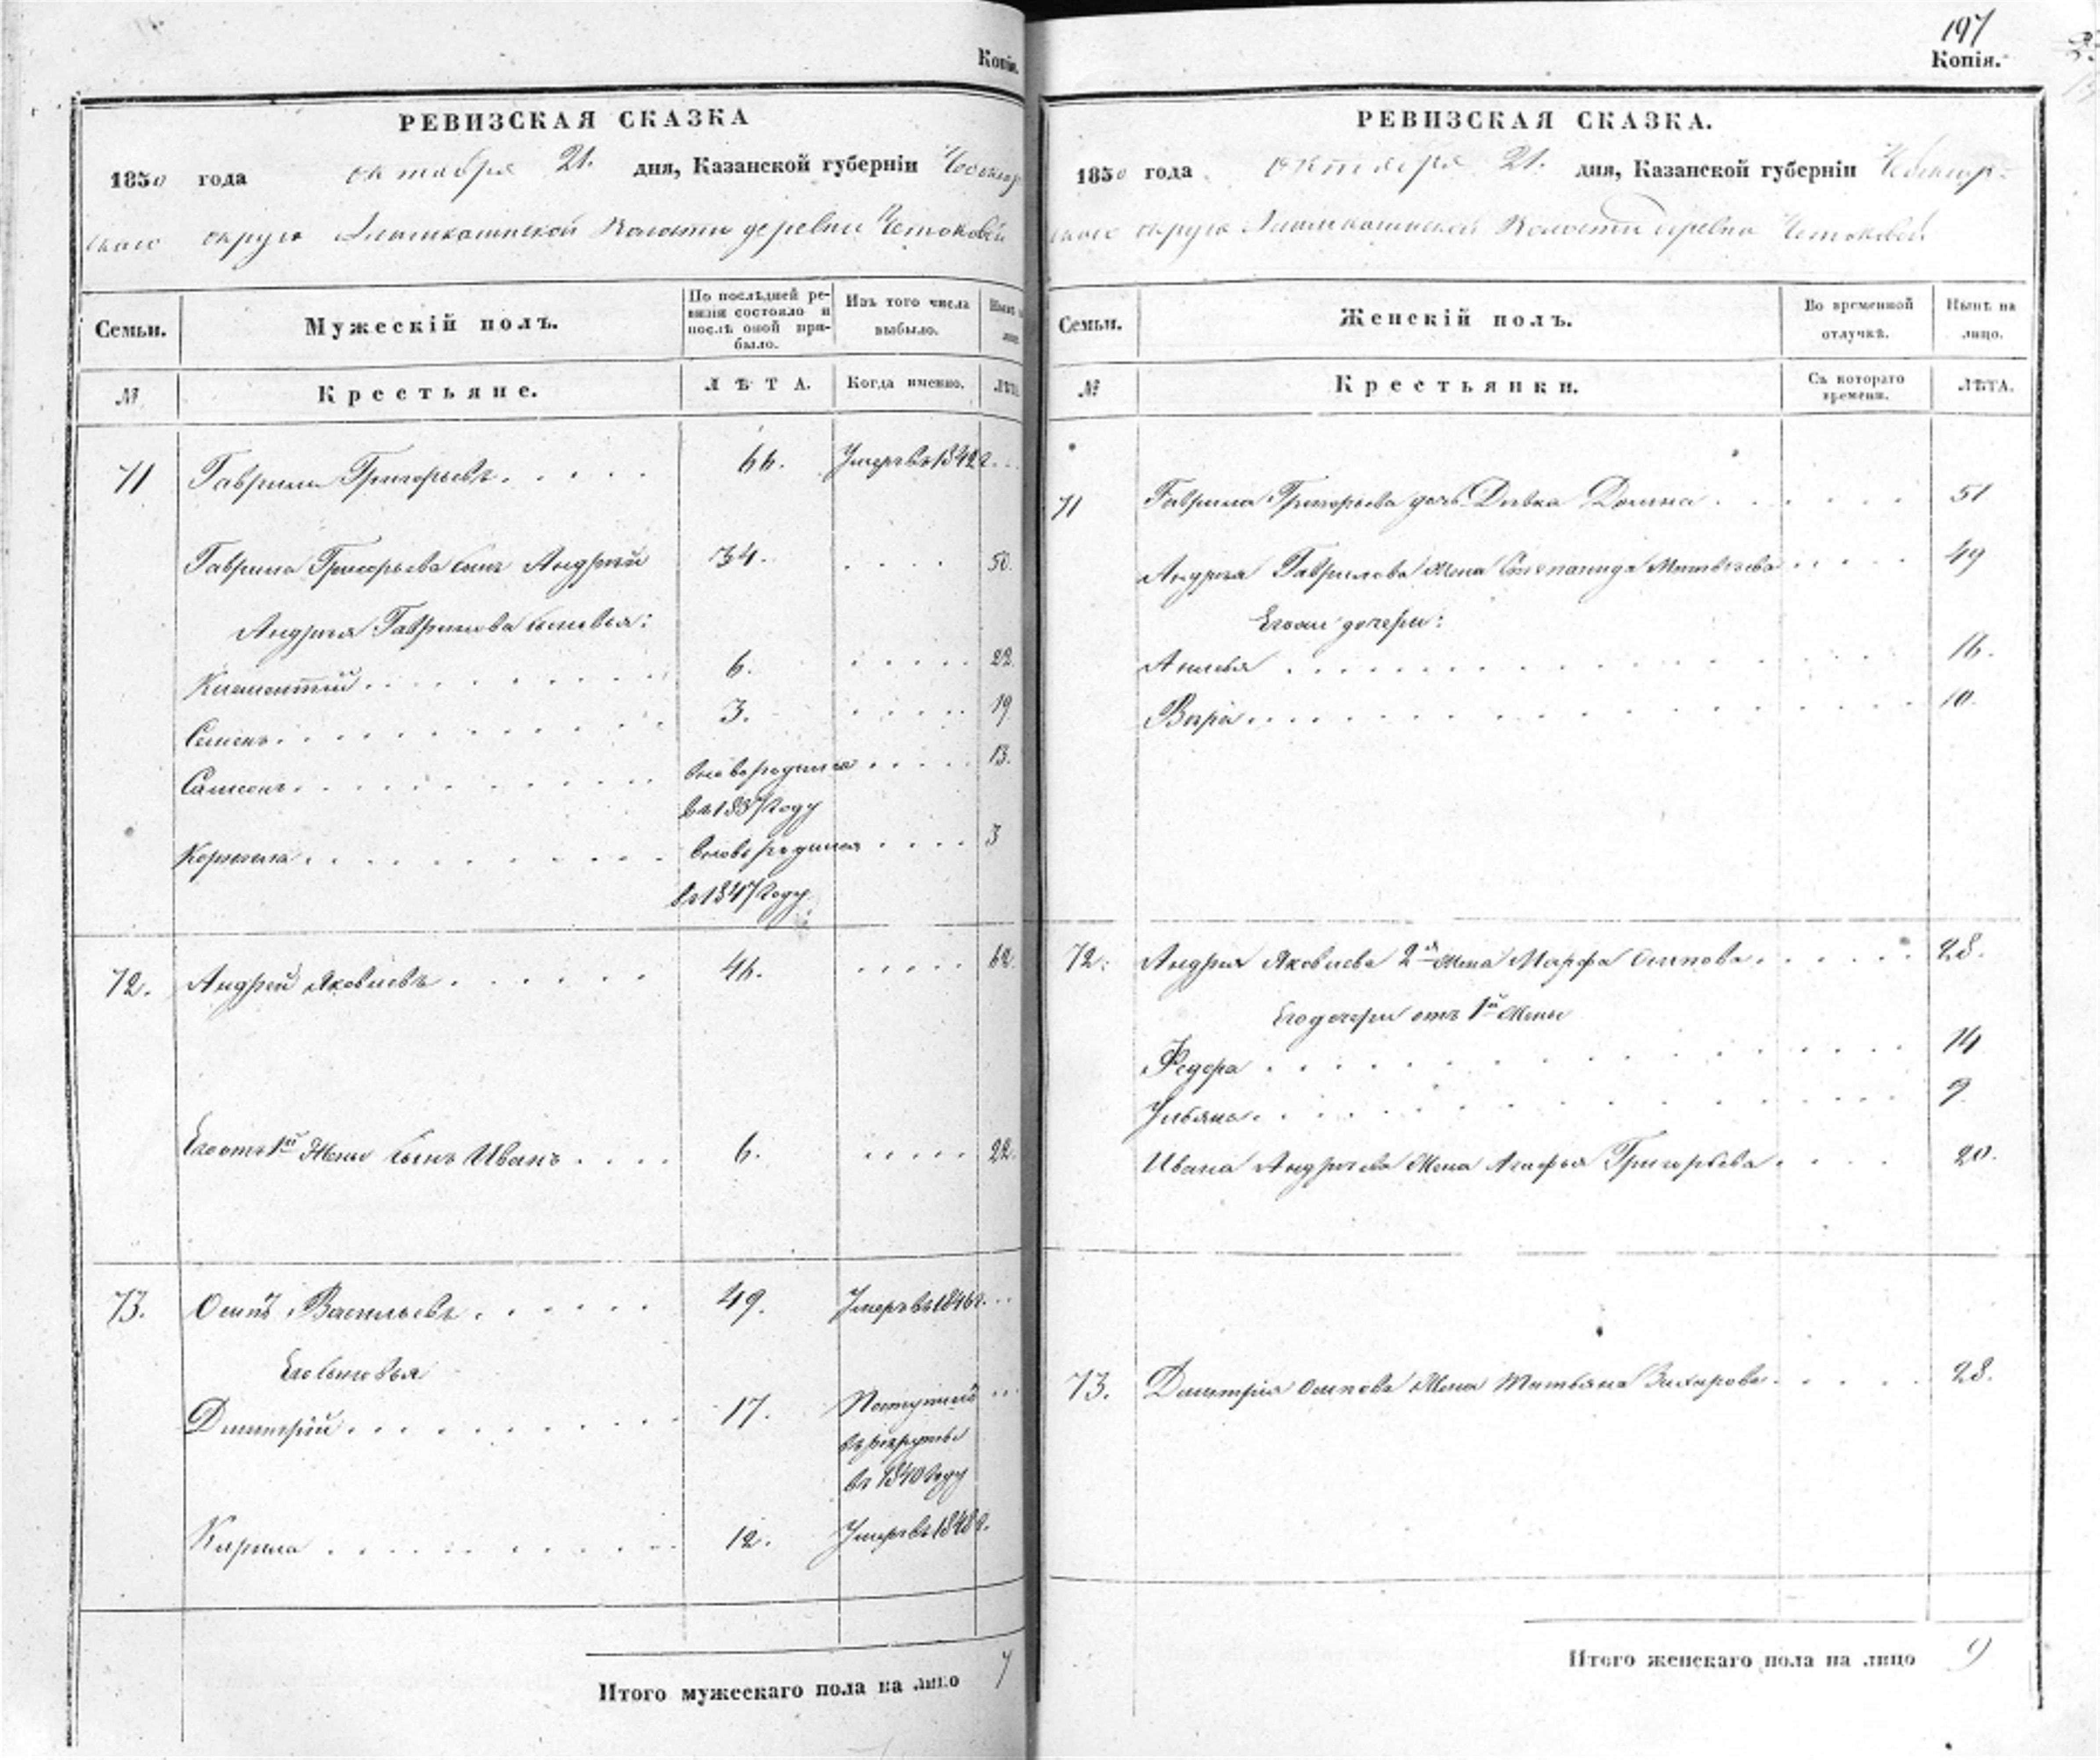 Копія.
РЕВИЗСКАЯ СКАЗКА
1850 года октября 21. дня, Казанской губерніи Чебоксар
скаго округа волости деревни
Семьи. Мужескій полъ. По послѣдней ре-
визіи состояло и
послѣ оной при-
было. Изъ того числа
выбыло. Нынѣ
лицо.
№ Крестьяне. ЛѢТА. Когда именно. ЛѢТА.
71 Гаврило Григорьевъ 66. Умеръ въ 1842 г.
Гаврила Григорьева сынъ Андрей 34. 50.
Андрея Гаврилова сыновья:
Климентій 6. 22.
Семенъ 3. 19
Самсонъ вновь родился 13.
въ 1837 году
Корнила вновь родился 3
въ 1847 году
72. Андрей Яковлевъ 46. 62.
Его отъ 1й Жены сынъ Иванъ 6. 22.
73. Осипъ Васильевъ 49. Умеръ въ 1846 г.
Его сыновья
Дмитрій 17. Поступилъ
въ рекруты
въ 1840 году
Кирила 12. Умеръ въ 1848 г.
Итого мужескаго пола на лицо 7
197
Копія.
РЕВИЗСКАЯ СКАЗКА.
1850 года октября 21. дня, Казанской губерніи Чебоксар-
скаго округа волости деревни
Семьи. Женскій полъ. Во временной
отлучкѣ. Нынѣ на
лицо.
№ Крестьянки. Съ котораго
времени. ЛѢТА.
71 Гаврила Григорьева дочь Девка Домна 51
Андрея Гаврилова Жена Степанида Матвеева 49
Его дочери:
16.
Вера 10.
72. Андрея Яковлева 2я Жена Марфа Осипова 28.
Его дочери отъ 1й Жены
Федора 14
Ульяна 9
Ивана Андреева Жена Агафья Григорьева 20.
73. Дмитрія Осипова Жена Татьяна Захарова 28.
Итого женскаго пола на лицо 9